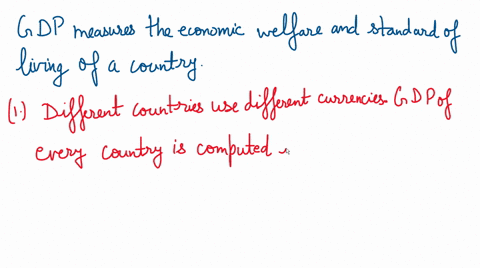 GDP measures the economic welfare and standard of
living of a country.
(1.) Different countries use different currencies. GDP of
every country is computed